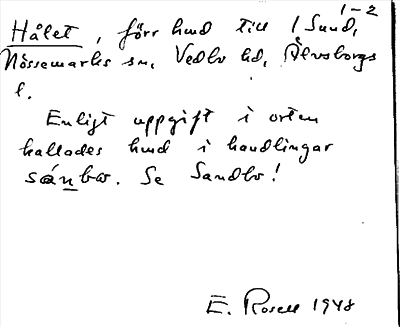 1-2
Hålet, förr hmd till 1 Sund,
Nössemarks sn, Vedbo hd, Älvsborgs
l.
Enligt uppgift i orten
kallades hmd i handlingar
sánbω. Se Sandbo!
E. Rosell 1948